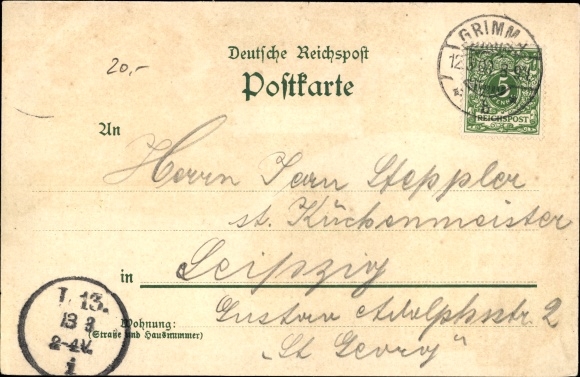 20,-
Deutsche Reichspost
Postkarte
GRIMM
12.
b
5
REICHSPOST
An
Herrn Jean Steppler
st. Küchenmeister
in Leipzig
Wohnung:
(Straße und Hausnummer)
Gustav Adolphstr 2
„St Georg"
L. 13.
13 3
2-4N.
i